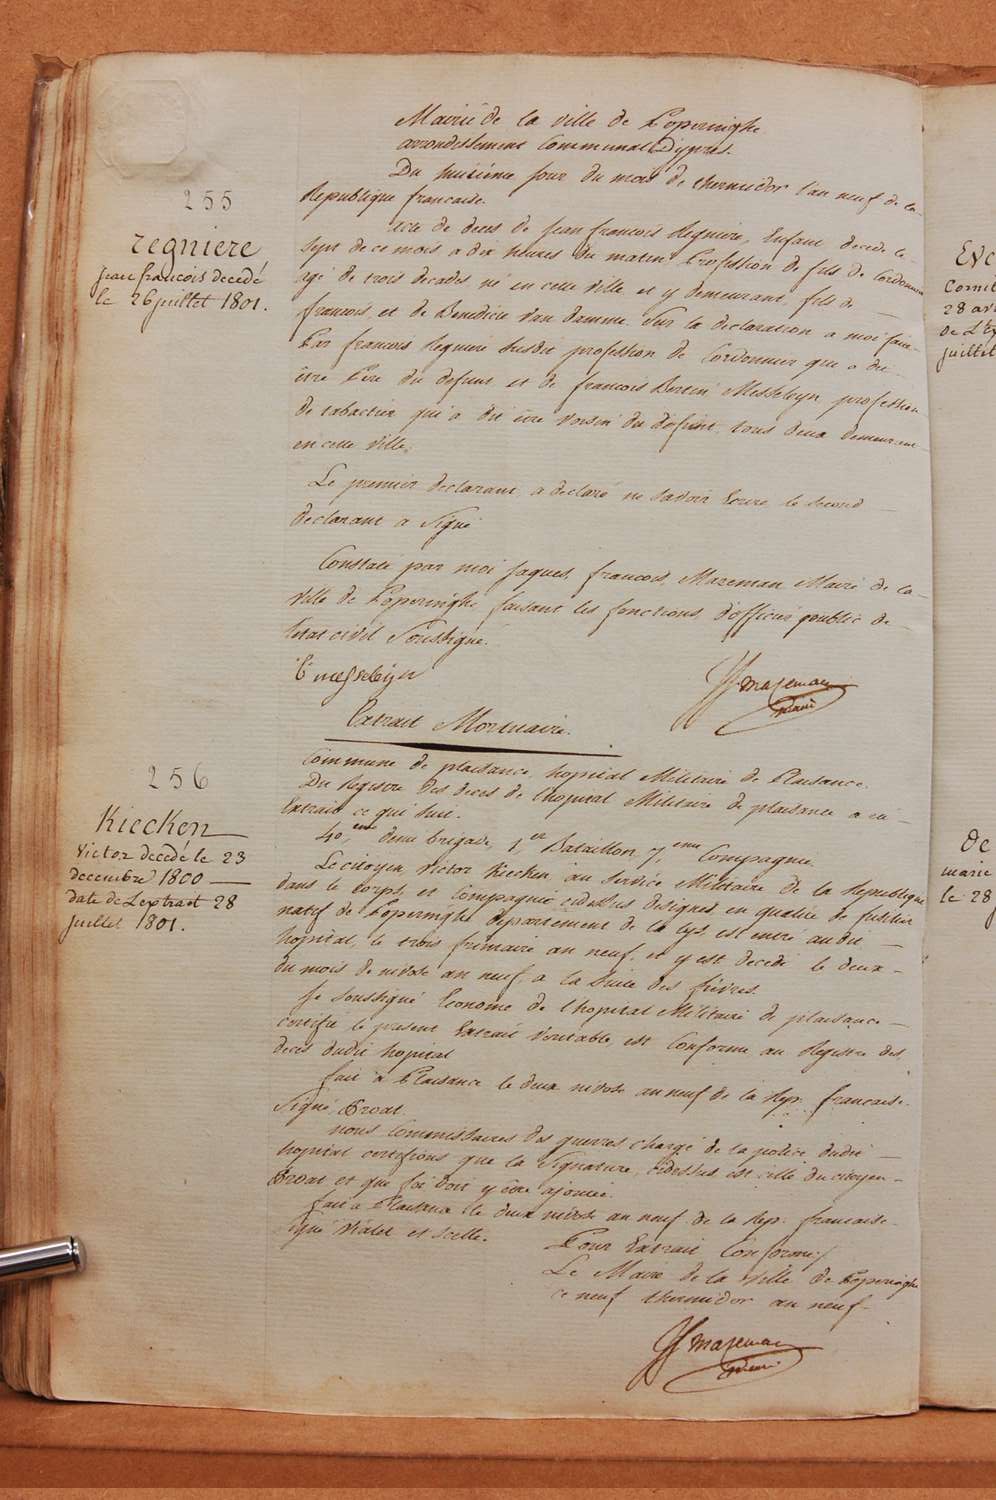 Mairie de la ville de Poperinghe
arrondissement Communal Dypres.
Du huitième jour du mois de thermidor l'an neuf de la
Republique francaise.
255
regniere
Jean francois decedé
le 26 juillet 1801.
Acte de deces de Jean francois Regniere, Enfant decede le
sept de ce mois a dix heures du matin Profession de fils de Cordonnier
agé de trois decades né en cette ville et y demeurant, fils de
francois, et de Benedicte Van damme. Sur la declaration a moi faite
Par francois Regniere susdit profession de Cordonnier que a dit
être Pere du defunt et de francois Bertin Messeleyn, profession
de tabactier qui a dit être voisin du défunt, tous deux demeurant
en cette ville.
Le premier declarant a declaré ne savoir Ecrire le second
declarant a Signé
Constaté par moi Jaques, francois, Mazeman Maire de la
Ville de Poperinghe faisant les fonctions d'officier public de
letat civil Soussigné.
B messeleijn
JJ mazeman
maire
Extrait Mortuaire.
256
Kiecken
Victor decedé le 23
decembre 1800
date de Lextrait 28
juillet 1801.
Commune de plaisance, hopital Militaire de Plaisance.
Du Registre des deces de l'hopital Militaire de plaisance a eté
Extrait ce qui suit.
40,eme demi brigade, 1er Bataillon 7,eme Compagnie
Le citoyen Victor Kiecken au service Militaire de la Republique
dans le Corps, et Compagnie cidessus designés en qualité de fusilier
natif de Poperinghe departement de la Lys, est entré audit
hopital, le trois frimaire an neuf, et y est decedé le deux
du mois de nivose an neuf, a la suite des fièvres.
Je soussigné Econome de l'hopital Militaire de plaisance
certifié le present Extrait Veritable, est Conforme au Registre des
deces dudit hopital
fait a Plaisance le deux nivose an neuf de la Rep. francaise.
Signé Broat
nous Commissaires des guerres chargé de la police dudit
hopital certifions que la Signature, cidessus est celle du citoyen
Broat et que foi doit y être ajoutée.
fait a Plaisance le deux nivose an neuf de la Rep. francaise
signé Vialet et scellé.
Pour Extrait Conforme/
Le Maire de la Ville de Poperinghe
ce neuf thermidor an neuf
JJ mazeman
maire
marie
le 28
28 av
juillet